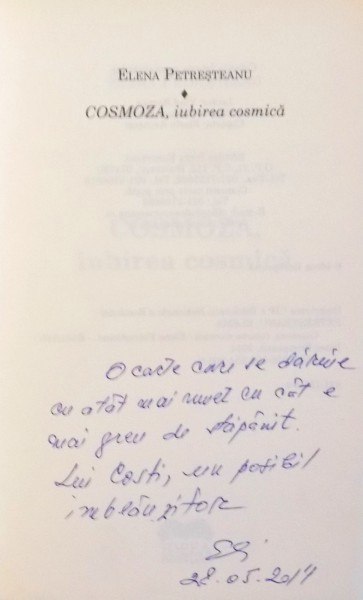 ELENA PETREȘTEANU
COSMOZA, iubirea cosmică
O carte care se dăruie
cu atât mai mult cu cât e
mai greu de stăpânit.
Lui Costi, un posibil
îmblânzitor
28.05.2011